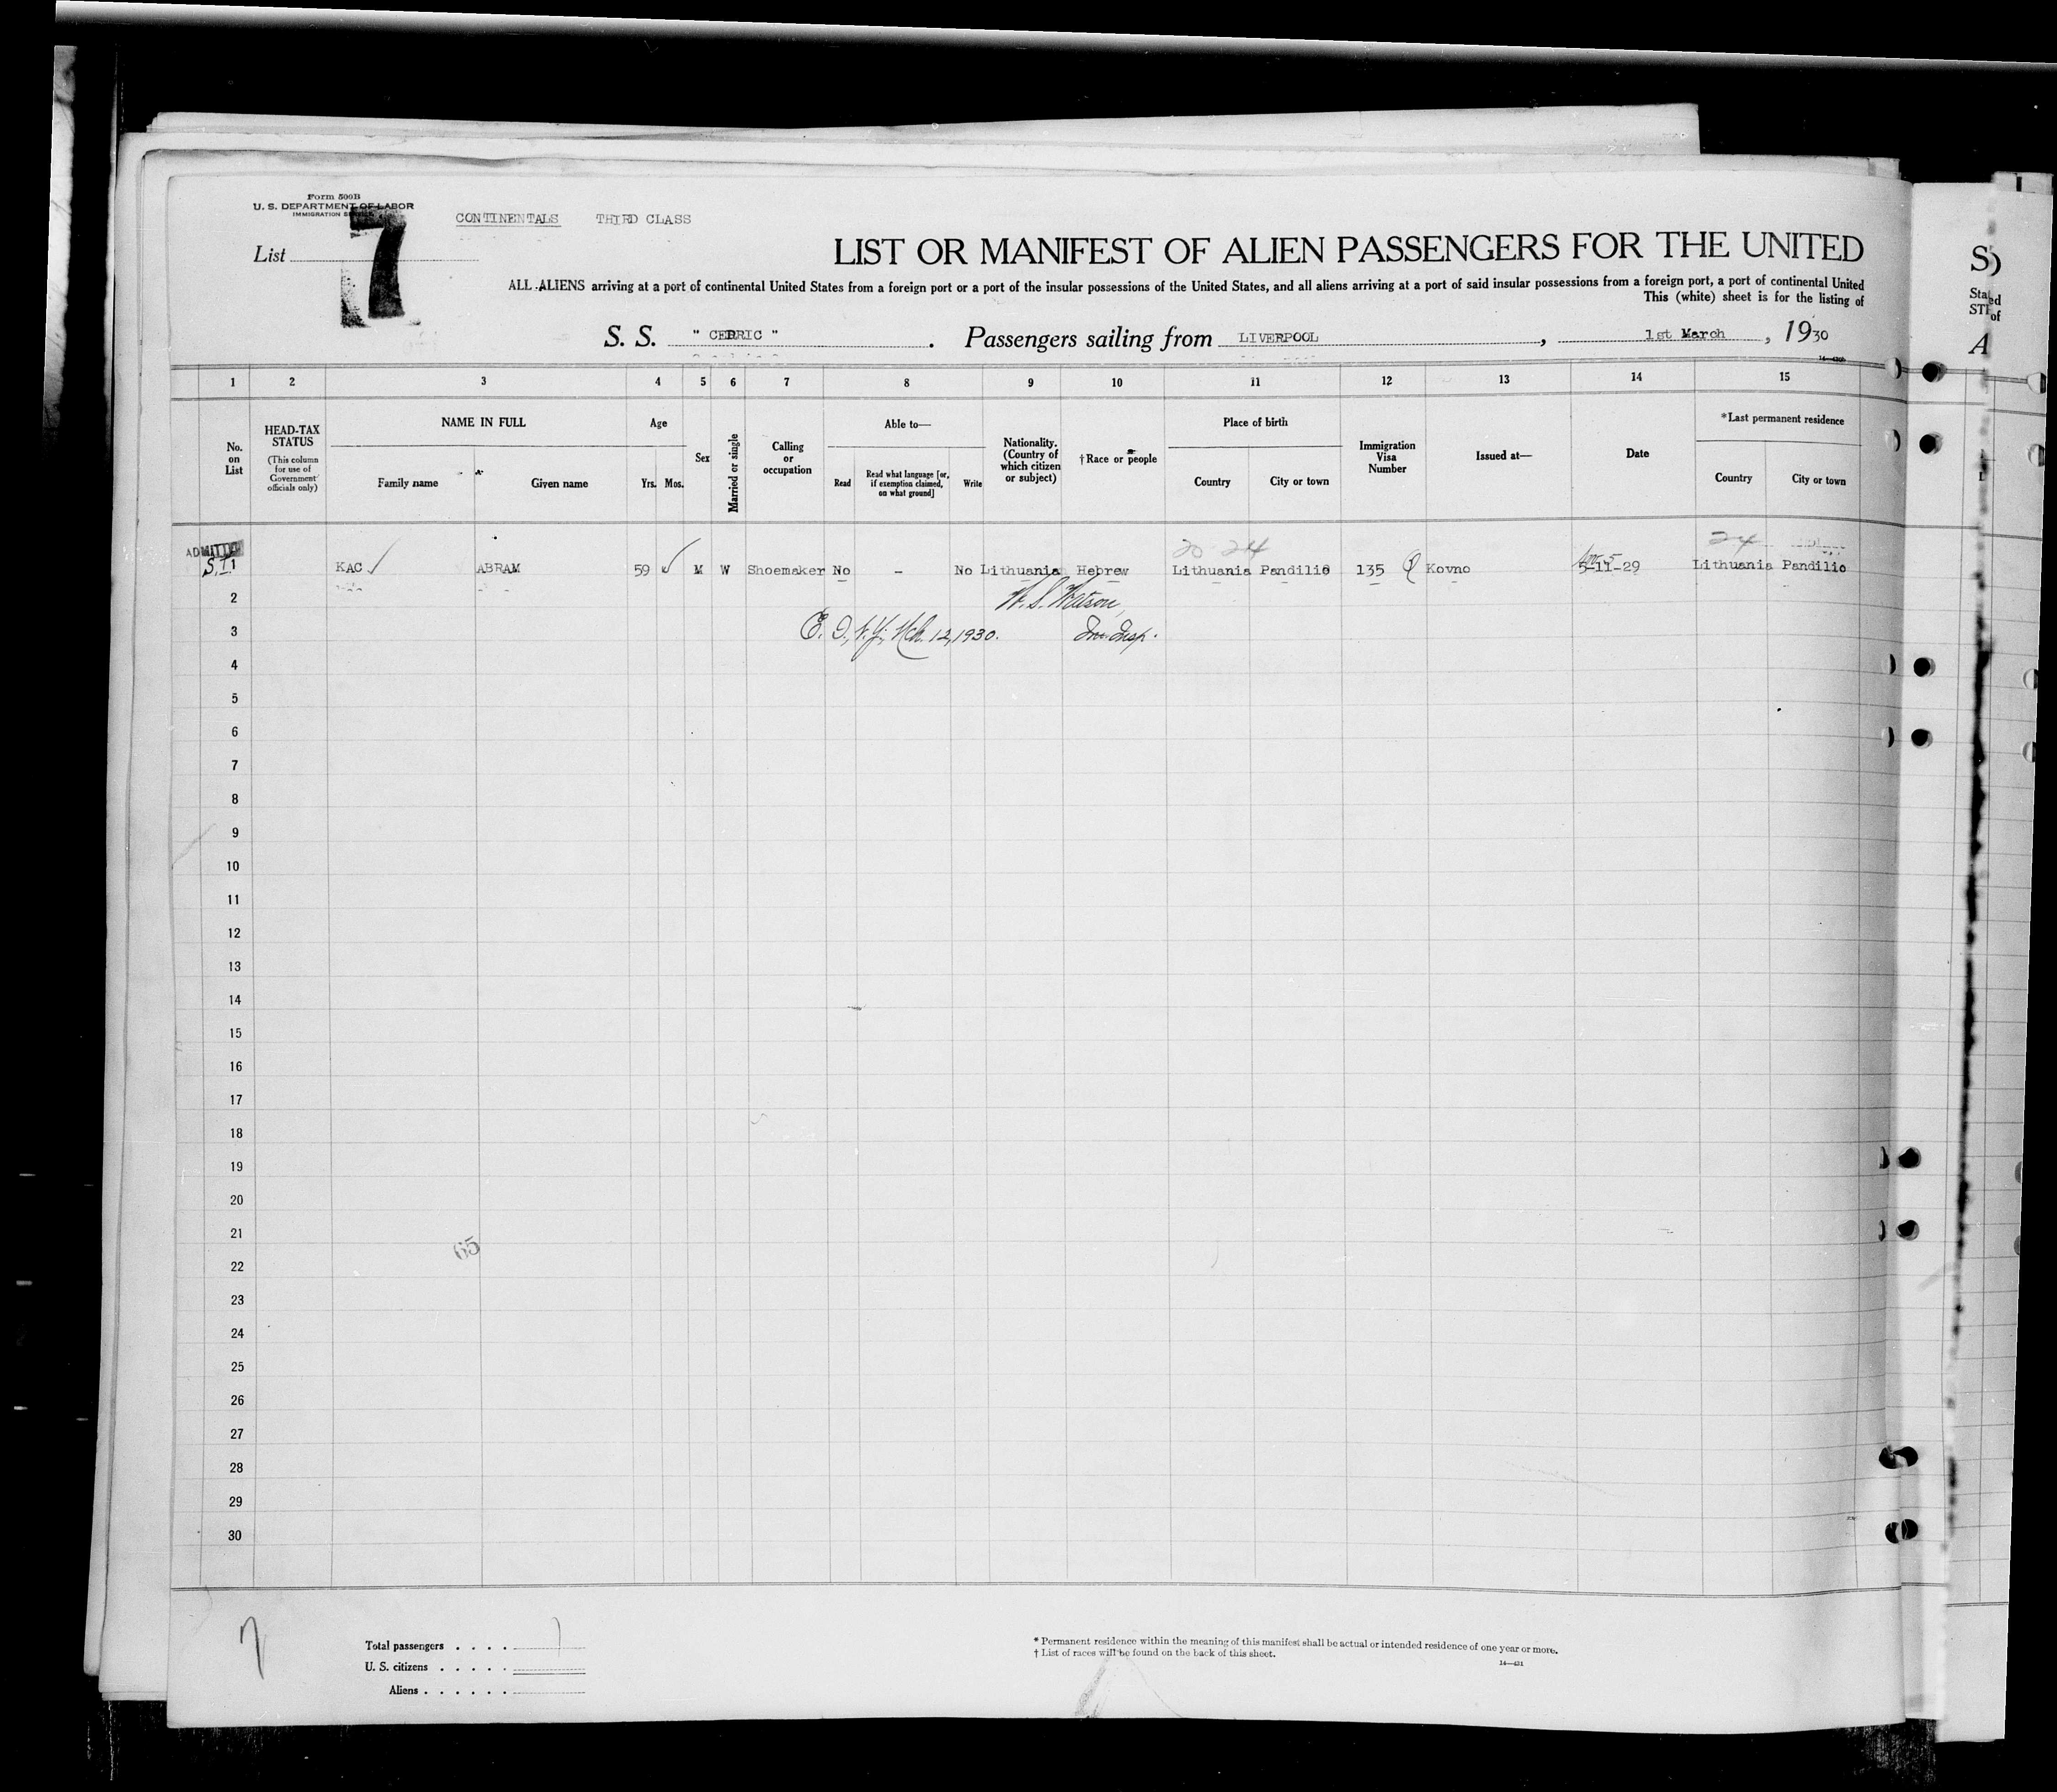 Form 500B
U. S. DEPARTMENT OF LABOR
IMMIGRATION SERVICE
CONTINENTALS THIRD CLASS
List 7
LIST OR MANIFEST OF ALIEN PASSENGERS FOR THE UNITED
ALL ALIENS arriving at a port of continental United States from a foreign port or a port of the insular possessions of the United States, and all aliens arriving at a port of said insular possessions from a foreign port, a port of continental United
This (white) sheet is for the listing of
S. S. " CEDRIC " . Passengers sailing from LIVERPOOL , 1st March , 1930
1 2 3 4 5 6 7 8 9 10 11 12 13 14 15
No. on List
HEAD-TAX STATUS
(This column for use of Government officials only)
NAME IN FULL
Family name Given name
Age
Yrs. Mos.
Sex
Married or single
Calling or occupation
Able to—
Read
Read what language [or, if exemption claimed, on what ground]
Write
Nationality. (Country of which citizen or subject)
†Race or people
Place of birth
Country City or town
Immigration Visa Number
Issued at—
Date
*Last permanent residence
Country City or town
ADMITTED
20 24 24
S.I. 1 KAC ABRAM 59 M W Shoemaker No - No Lithuania Hebrew Lithuania Pandilio 135 Kovno 5-11-29 Lithuania Pandilio
2 W. S. Watson,
3 E. I., N.Y., Mch. 12, 1930. Im. Insp.
4
5
6
7
8
9
10
11
12
13
14
15
16
17
18
19
20
21
65
22
23
24
25
26
27
28
29
30
7
Total passengers . . . . 1
U. S. citizens . . . . .
Aliens . . . . . .
* Permanent residence within the meaning of this manifest shall be actual or intended residence of one year or more.
† List of races will be found on the back of this sheet.